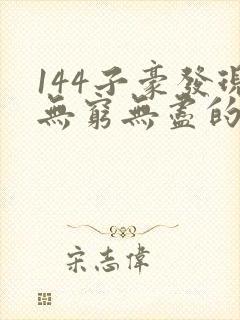 144子豪發現
無窮無盡的
宋志偉